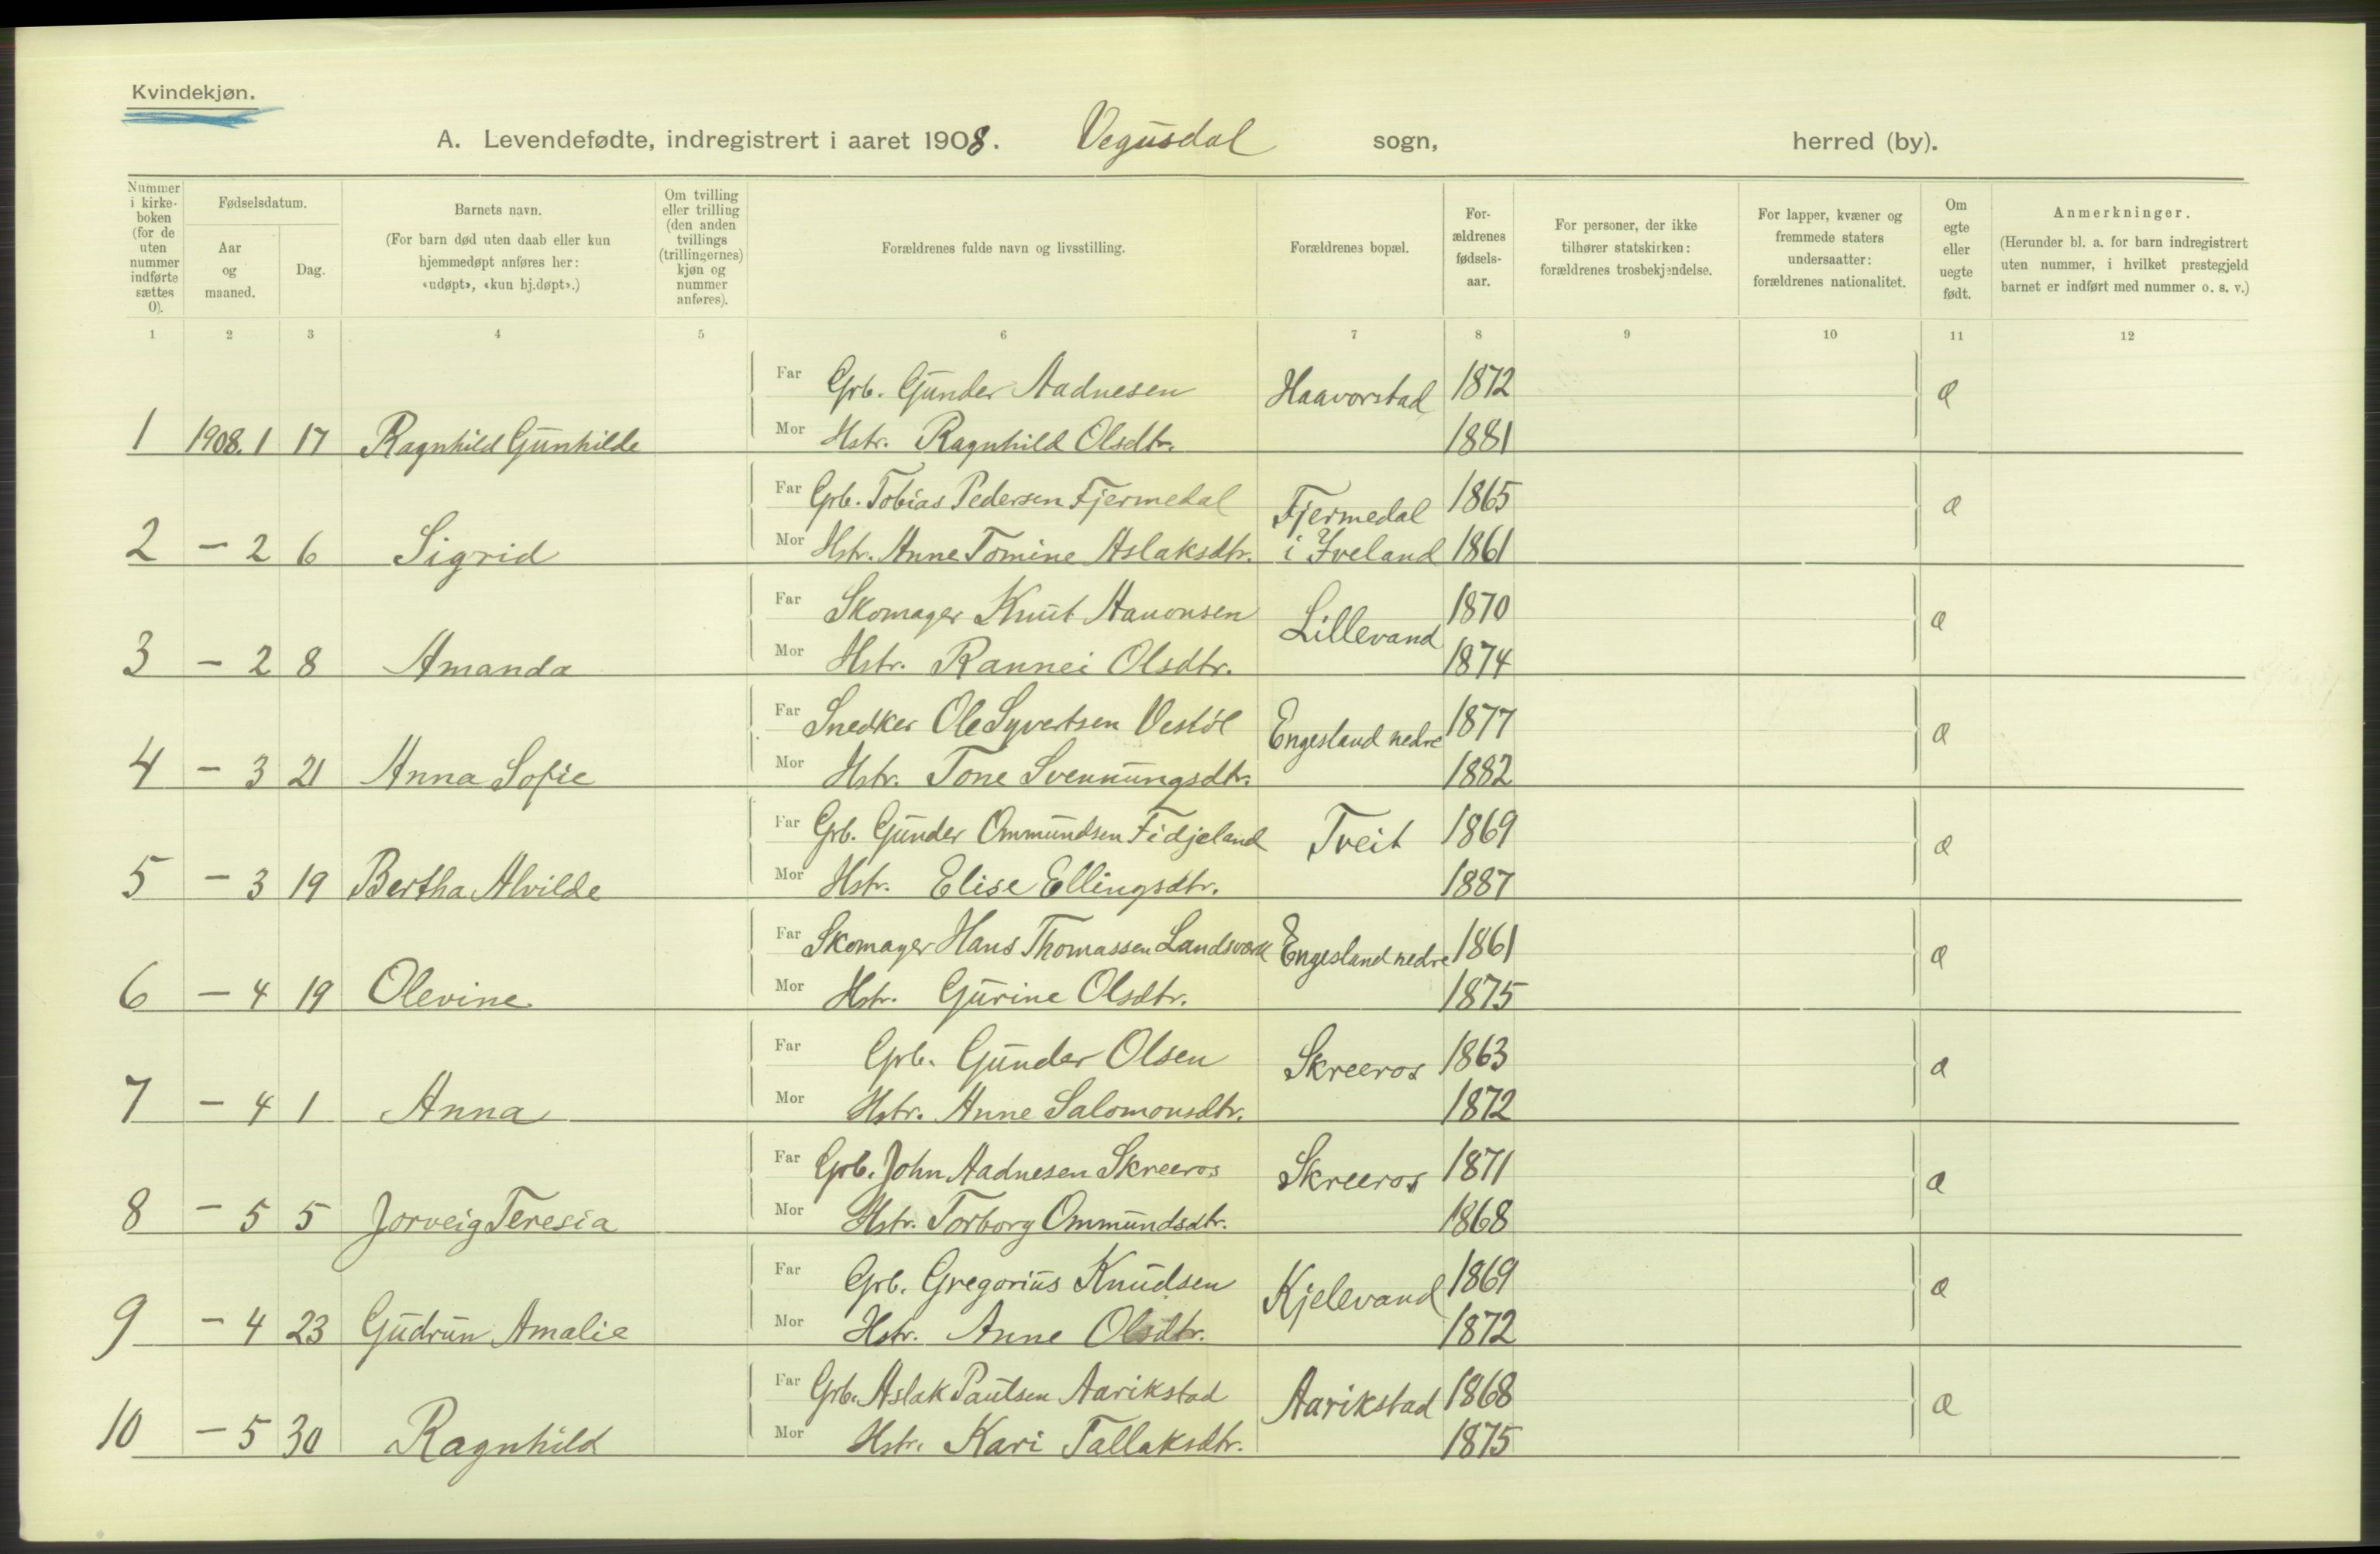 Kvindekjøn.
A. Levendefødte, indregistrert i aaret 1908. Vegusdal sogn, herred (by).
Nummer i kirke-boken (for de uten nummer indførte sættes 0).
Fødselsdatum.
Aar og maaned.
Dag.
Barnets navn.
(For barn død uten daab eller kun hjemmedøpt anføres her: «udøpt», «kun hj.døpt».)
Om tvilling eller trilling (den anden tvillings (trillingernes) kjøn og nummer anføres).
Forældrenes fulde navn og livsstilling.
Forældrenes bopæl.
For-ældrenes fødsels-aar.
For personer, der ikke tilhører statskirken: forældrenes trosbekjendelse.
For lapper, kvæner og fremmede staters undersaatter: forældrenes nationalitet.
Om egte eller uegte født.
Anmerkninger.
(Herunder bl. a. for barn indregistrert uten nummer, i hvilket prestegjeld barnet er indført med nummer o. s. v.)
1 2 3 4 5 6 7 8 9 10 11 12
Far Grb. Gunder Aadnesen Haavorstad 1872 æ
1 1908.1 17 Ragnhild Gunhilde Mor Hstr. Ragnhild Olsdtr. 1881
Far Grb. Tobias Pedersen Fjermedal Fjermedal 1865 æ
2 – 2 6 Sigrid Mor Hstr. Anne Tomine Aslaksdtr. i Iveland 1861
Far Skomager Knut Aanonsen Lillevand 1870 æ
3 – 2 8 Amanda Mor Hstr. Rannei Olsdtr. 1874
Far Snedker Ole Syvertsen Vestöl Engesland nedre 1877 æ
4 – 3 21 Anna Sofie Mor Hstr. Tone Svennungsdtr. 1882
Far Grb. Gunder Ommundsen Fidjeland Tveit 1869 æ
5 – 3 19 Bertha Alvilde Mor Hstr. Elise Ellingsdtr. 1887
Far Skomager Hans Thomassen Landsverk Engesland nedre 1861 æ
6 – 4 19 Olevine Mor Hstr. Gurine Olsdtr. 1875
Far Grb. Gunder Olsen Skreeros 1863 æ
7 – 4 1 Anna Mor Hstr. Anne Salomonsdtr. 1872
Far Grb. John Aadnesen Skreeros Skreeros 1871 æ
8 – 5 5 Jorveig Teresia Mor Hstr. Torborg Ommundsdtr. 1868
Far Grb. Gregorius Knudsen Kjelevand 1869 æ
9 – 4 23 Gudrun Amalie Mor Hstr. Anne Olsdtr. 1872
Far Grb. Aslak Paulsen Aarikstad Aarikstad 1868 æ
10 – 5 30 Ragnhild Mor Hstr. Kari Tallaksdtr. 1875